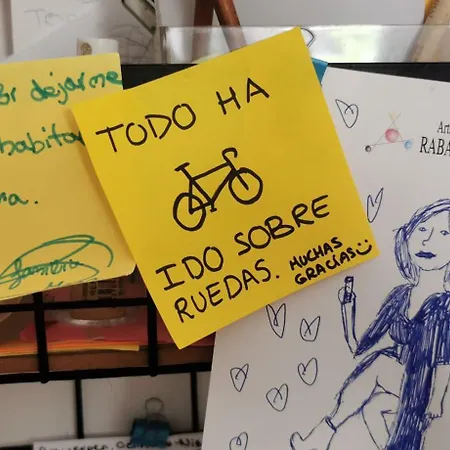 or dejarme
habita
na.
TODO HA
IDO SOBRE
RUEDAS. MUCHAS
GRACIAS
Art
RABA